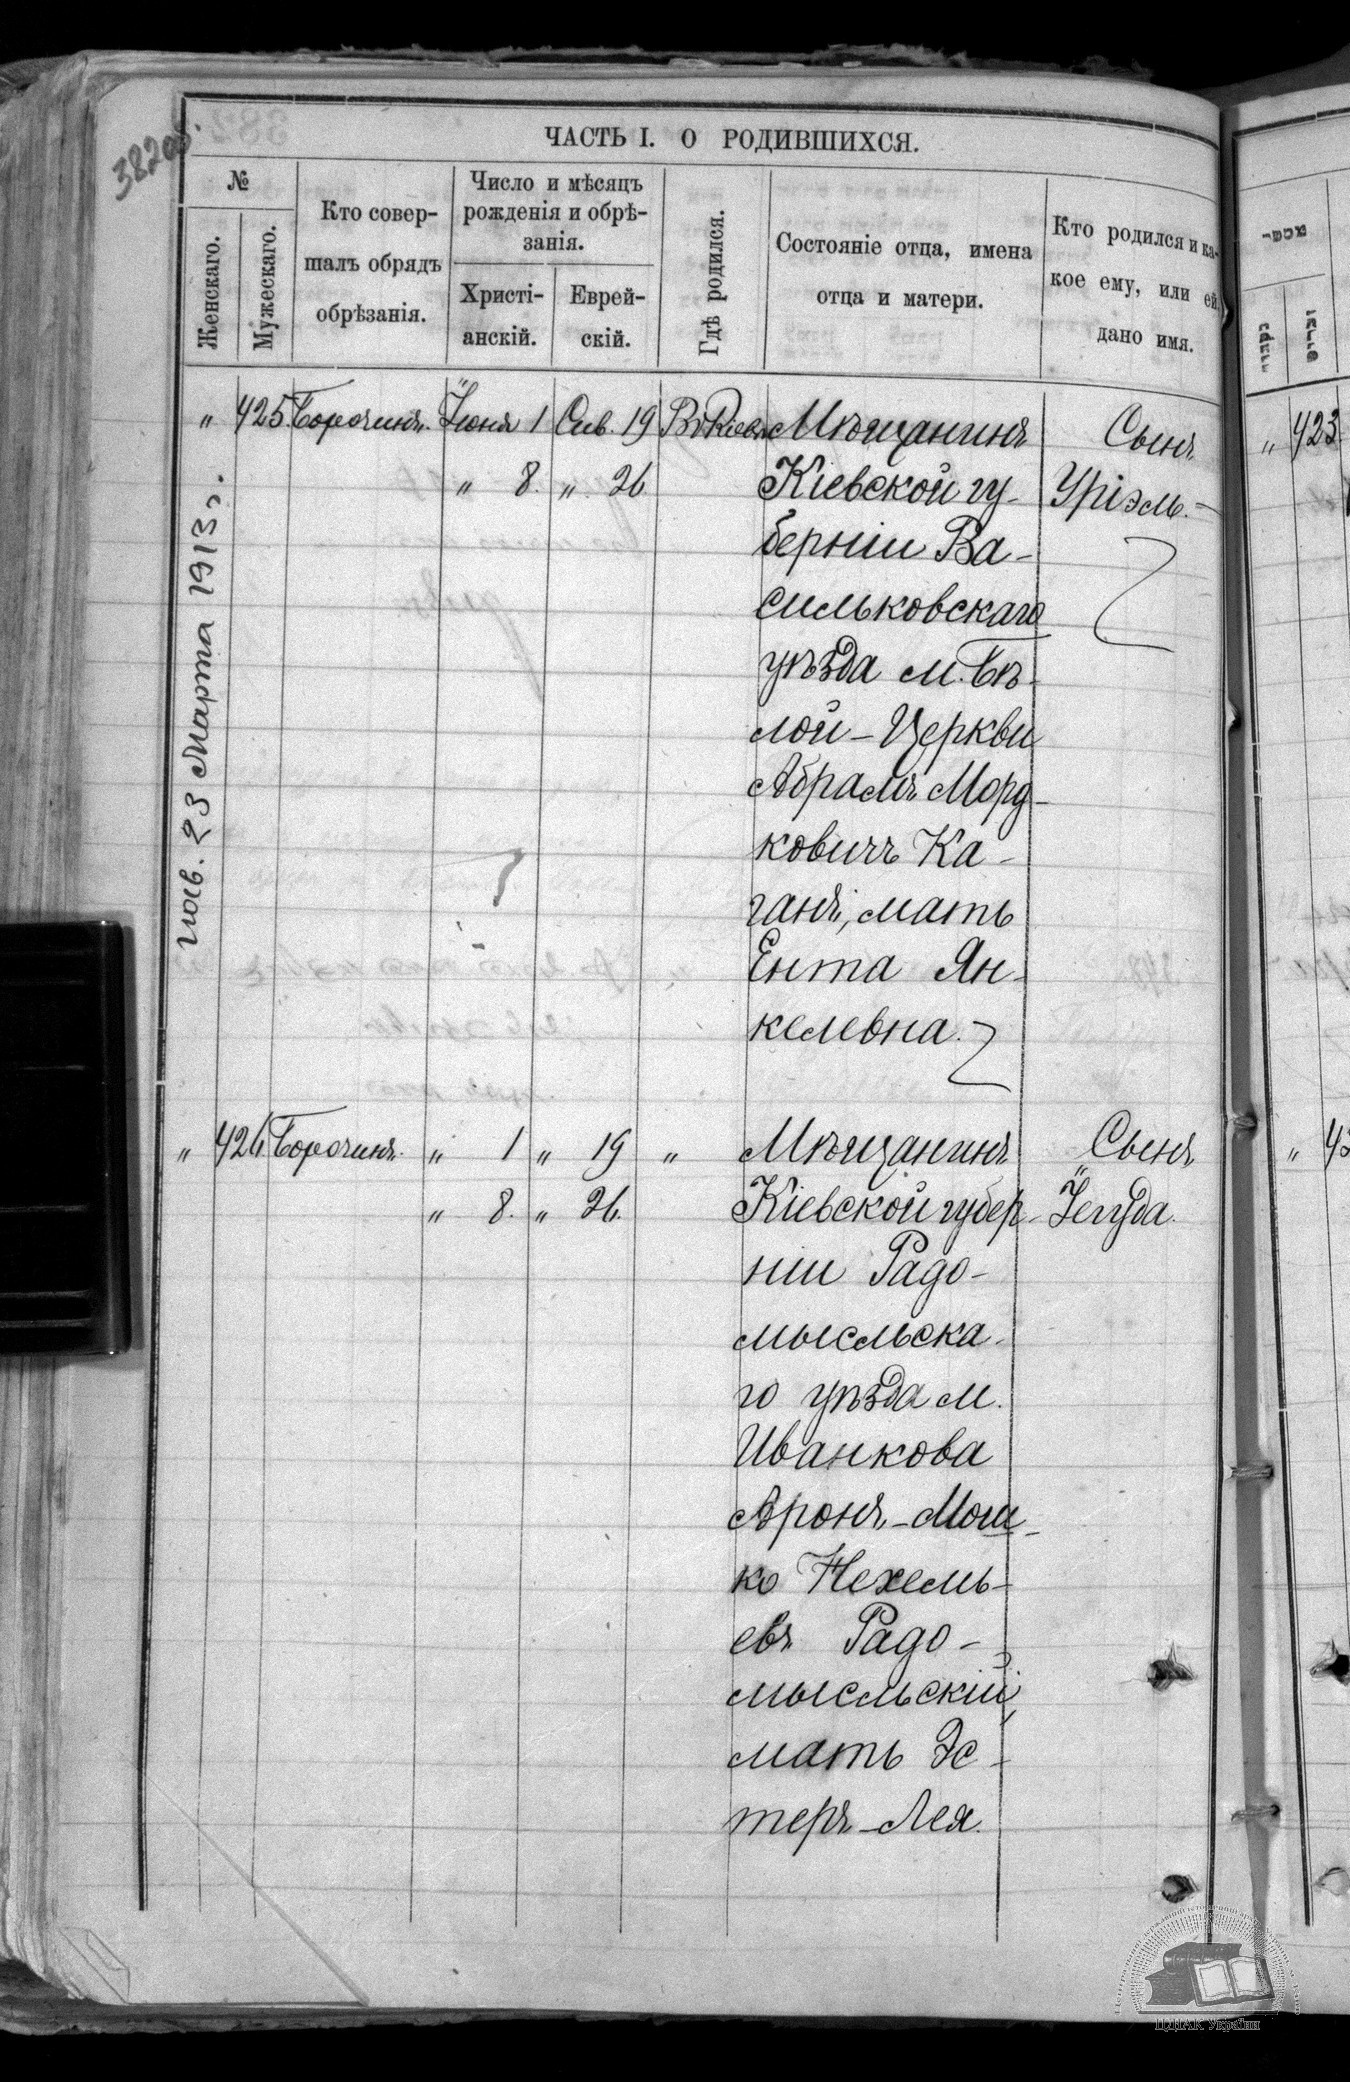 382об.
ЧАСТЬ I. О РОДИВШИХСЯ.
№
Женскаго.
Мужескаго.
Кто совер-
шалъ обрядъ
обрѣзанія.
Число и мѣсяцъ
рожденія и обрѣ-
занія.
Христі-
анскій.
Еврей-
скій.
Гдѣ родился.
Состояніе отца, имена
отца и матери.
Кто родился и ка-
кое ему, или ей,
дано имя.
" 425. Борочинъ. Іюня 1 Сив. 19 Въ Кіевѣ Мѣщанинъ Сынъ
" 8. " 26. Кіевской гу- Уріэль.
берніи Ва-
сильковскаго
уѣзда м. Бѣ-
лой-Церкви
Абрамъ Морд-
ковичъ Ка-
ганъ, мать
Ента Ян-
келевна.
" 426 Борочинъ. " 1 " 19 " Мѣщанинъ Сынъ
" 8. " 26. Кіевской губер- Іегуда.
ніи Радо-
мысльска-
го уѣзда м.
Иванкова
Аронъ-Мош-
ко Нехемь-
евъ Радо-
мысльскій,
мать Эс-
теръ-Лея.
23 Марта 1913 г.
" 423
ЦДІАК України